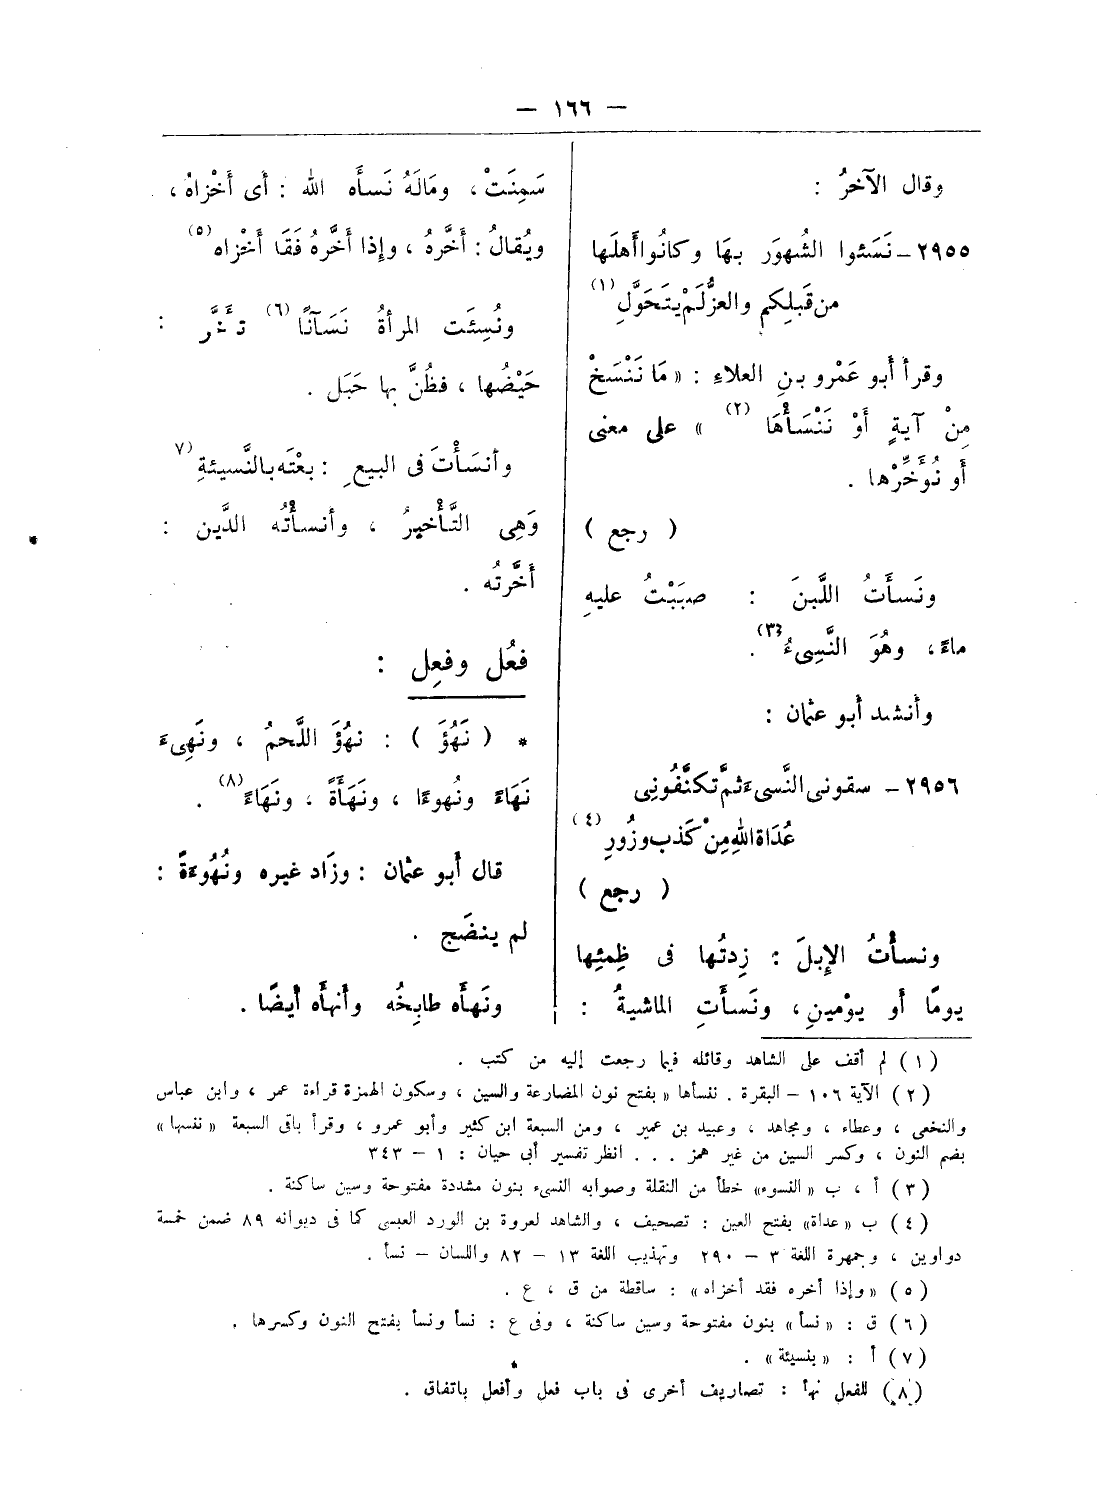 — ١٦٦ —
وقال الآخرُ :
٢٩٥٥ – نَسَئوا الشُهوَر بهَا وكانُوا أهلَها
من قَبلِكم والعزُّ لَمْ يتَحَوَّلِ (١)
وقرأ أبو عَمْرو بنِ العلاءِ : « مَا نَنْسَخْ
مِنْ آيةٍ أَوْ نَنْسَأْهَا (٢) » على معنى
أَو نُؤَخِّرْها .
( رجع )
ونَسأَتُ اللَّبنَ : صبَبْتُ عليهِ
ماءً ، وهُوَ النَّسِىءُ (٣) .
وأنشد أبو عثمان :
٢٩٥٦ – سقونى النَّسىءَ ثمَّ تكنَّفُونِى
عُدَاة اللهِ مِنْ كَذب وزُورِ (٤)
( رجع )
ونسأْتُ الإِبلَ : زِدتُها فى ظِمئِها
يومًا أَو يوْمينِ ، ونَسأَتِ الماشيةُ :
سَمِنَتْ ، ومَالَهُ نَسأَه الله : أى أَخْزاهُ ،
ويُقالُ : أَخَّرهُ ، وإِذا أَخَّرهُ فَقَا أَخْزاه (٥)
ونُسِئَت المرأةُ نَسَآنًا (٦) تأخَّر :
حَيْضُها ، فظُنَّ بها حَبَل .
وأنسَأْتَ فى البيعِ : بعْتَه بالنَّسيئةِ (٧
وَهِى التَّأْخيرُ ، وأنسأْتُه الدَّين :
أَخَّرتُه .
فعُل وفعِل :
* ( نَهُؤَ ) : نهُؤَ اللَّحمُ ، ونَهِىءَ
نَهَاءً ونُهوءًا ، ونَهَأَةً ، ونَهَاءً (٨) .
قال أَبو عثمان : وزَاد غيره ونُهُوءَةً :
لم ينضَج .
ونَهأَه طابِخُه وأَنهأَه أيضًا .
(١) لم أقف على الشاهد وقائله فيما رجعت إليه من كتب .
(٢) الآية ١٠٦ – البقرة . ننسأها « بفتح نون المضارعة والسين ، وسكون الهمزة قراءة عمر ، وابن عباس
والنخعى ، وعطاء ، ومجاهد ، وعبيد بن عمير ، ومن السبعة ابن كثير وأبو عمرو ، وقرأ باقى السبعة « ننسها »
بضم النون ، وكسر السين من غير همز . . . انظر تفسير أبى حيان : ١ – ٣٤٣
(٣) أ ، ب « النسوء » خطأ من النقلة وصوابه النسىء بنون مشددة مفتوحة وسين ساكنة .
(٤) ب « عداة » بفتح العين : تصحيف ، والشاهد لعروة بن الورد العبسى كما فى ديوانه ٨٩ ضمن خمسة
دواوين ، وجمهرة اللغة ٣ – ٢٩٠ وتهذيب اللغة ١٣ – ٨٢ واللسان – نسأ .
(٥) « وإذا أخره فقد أخزاه » : ساقطة من ق ، ع .
(٦) ق : « نسأ » بنون مفتوحة وسين ساكنة ، وفى ع : نسأ ونسأ بفتح النون وكسرها .
(٧) أ : « بنسيئة » .
(٨) للفعل نهأ : تصاريف أخرى فى باب فعل وأفعل باتفاق .